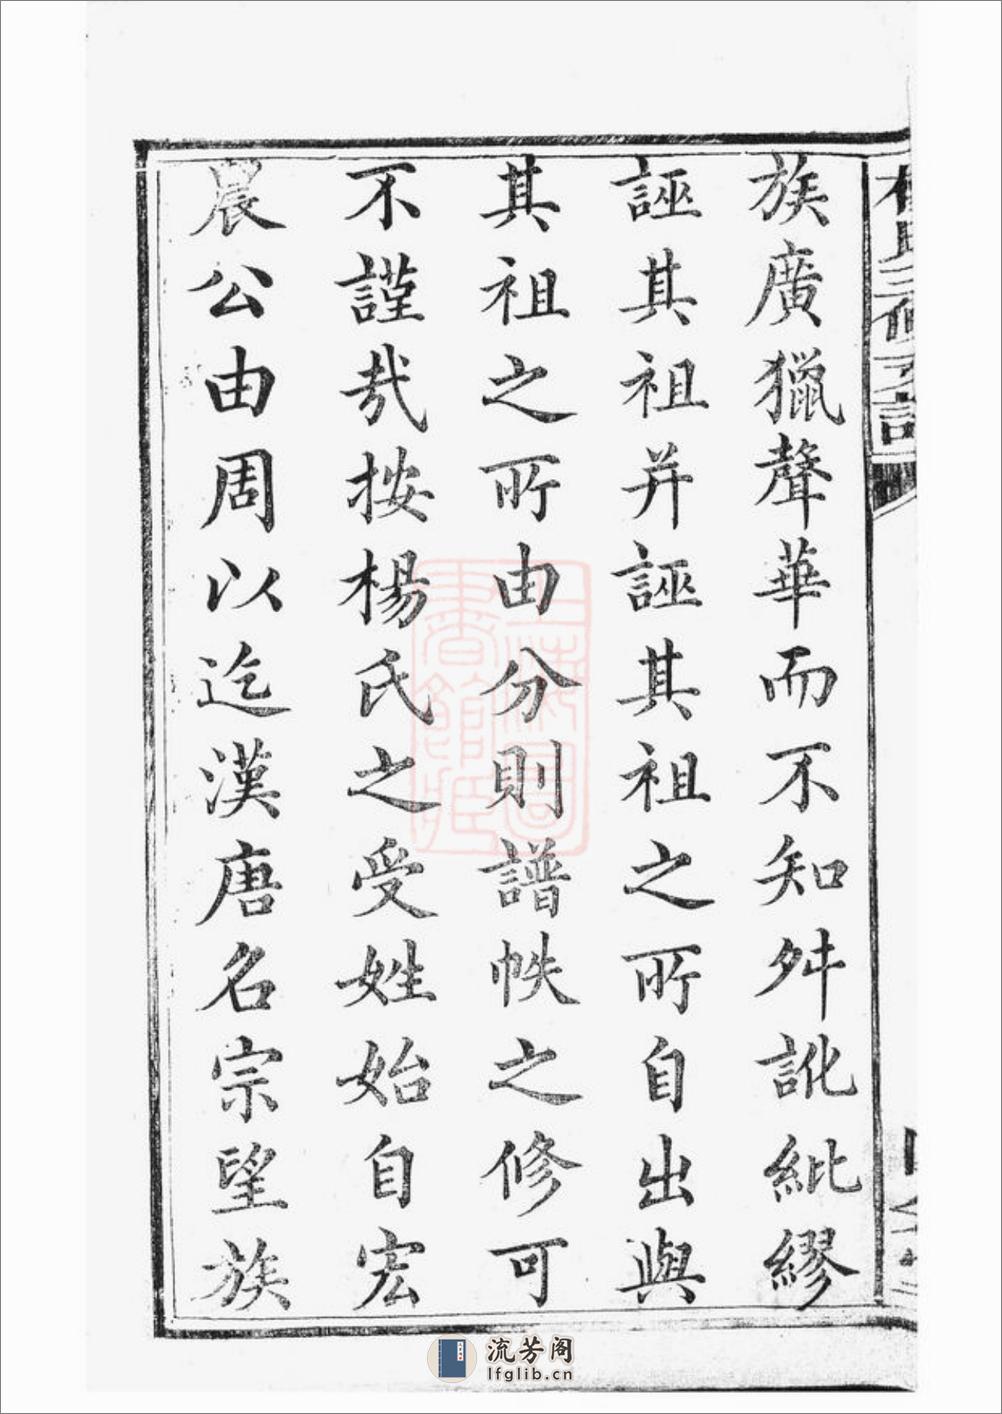 族廣獵聲華而不知舛訛紕繆
誣其祖并誣其祖之所自出與
其祖之所由分則譜帙之修可
不謹哉按楊氏之受姓始自宏
農公由周以迄漢唐名宗望族
上海圖書館藏
流芳阁
lfglib.cn